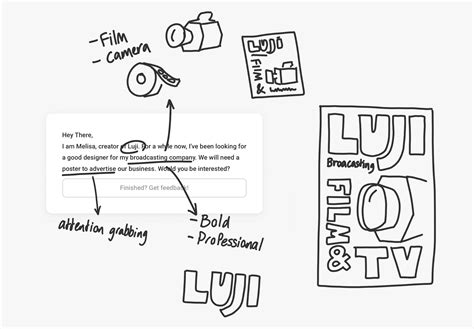 - Film
- Camera
LUJI
FILM
&
Hey There,
I am Melisa, creator of Luji. For a while now, I've been looking for
a good designer for my broadcasting company. We will need a
poster to advertise our business. Would you be interested?
Finished? Get feedback!
attention grabbing
- Bold
- Professional
LUJI
LUJI
Broadcasting
FILM
& TV